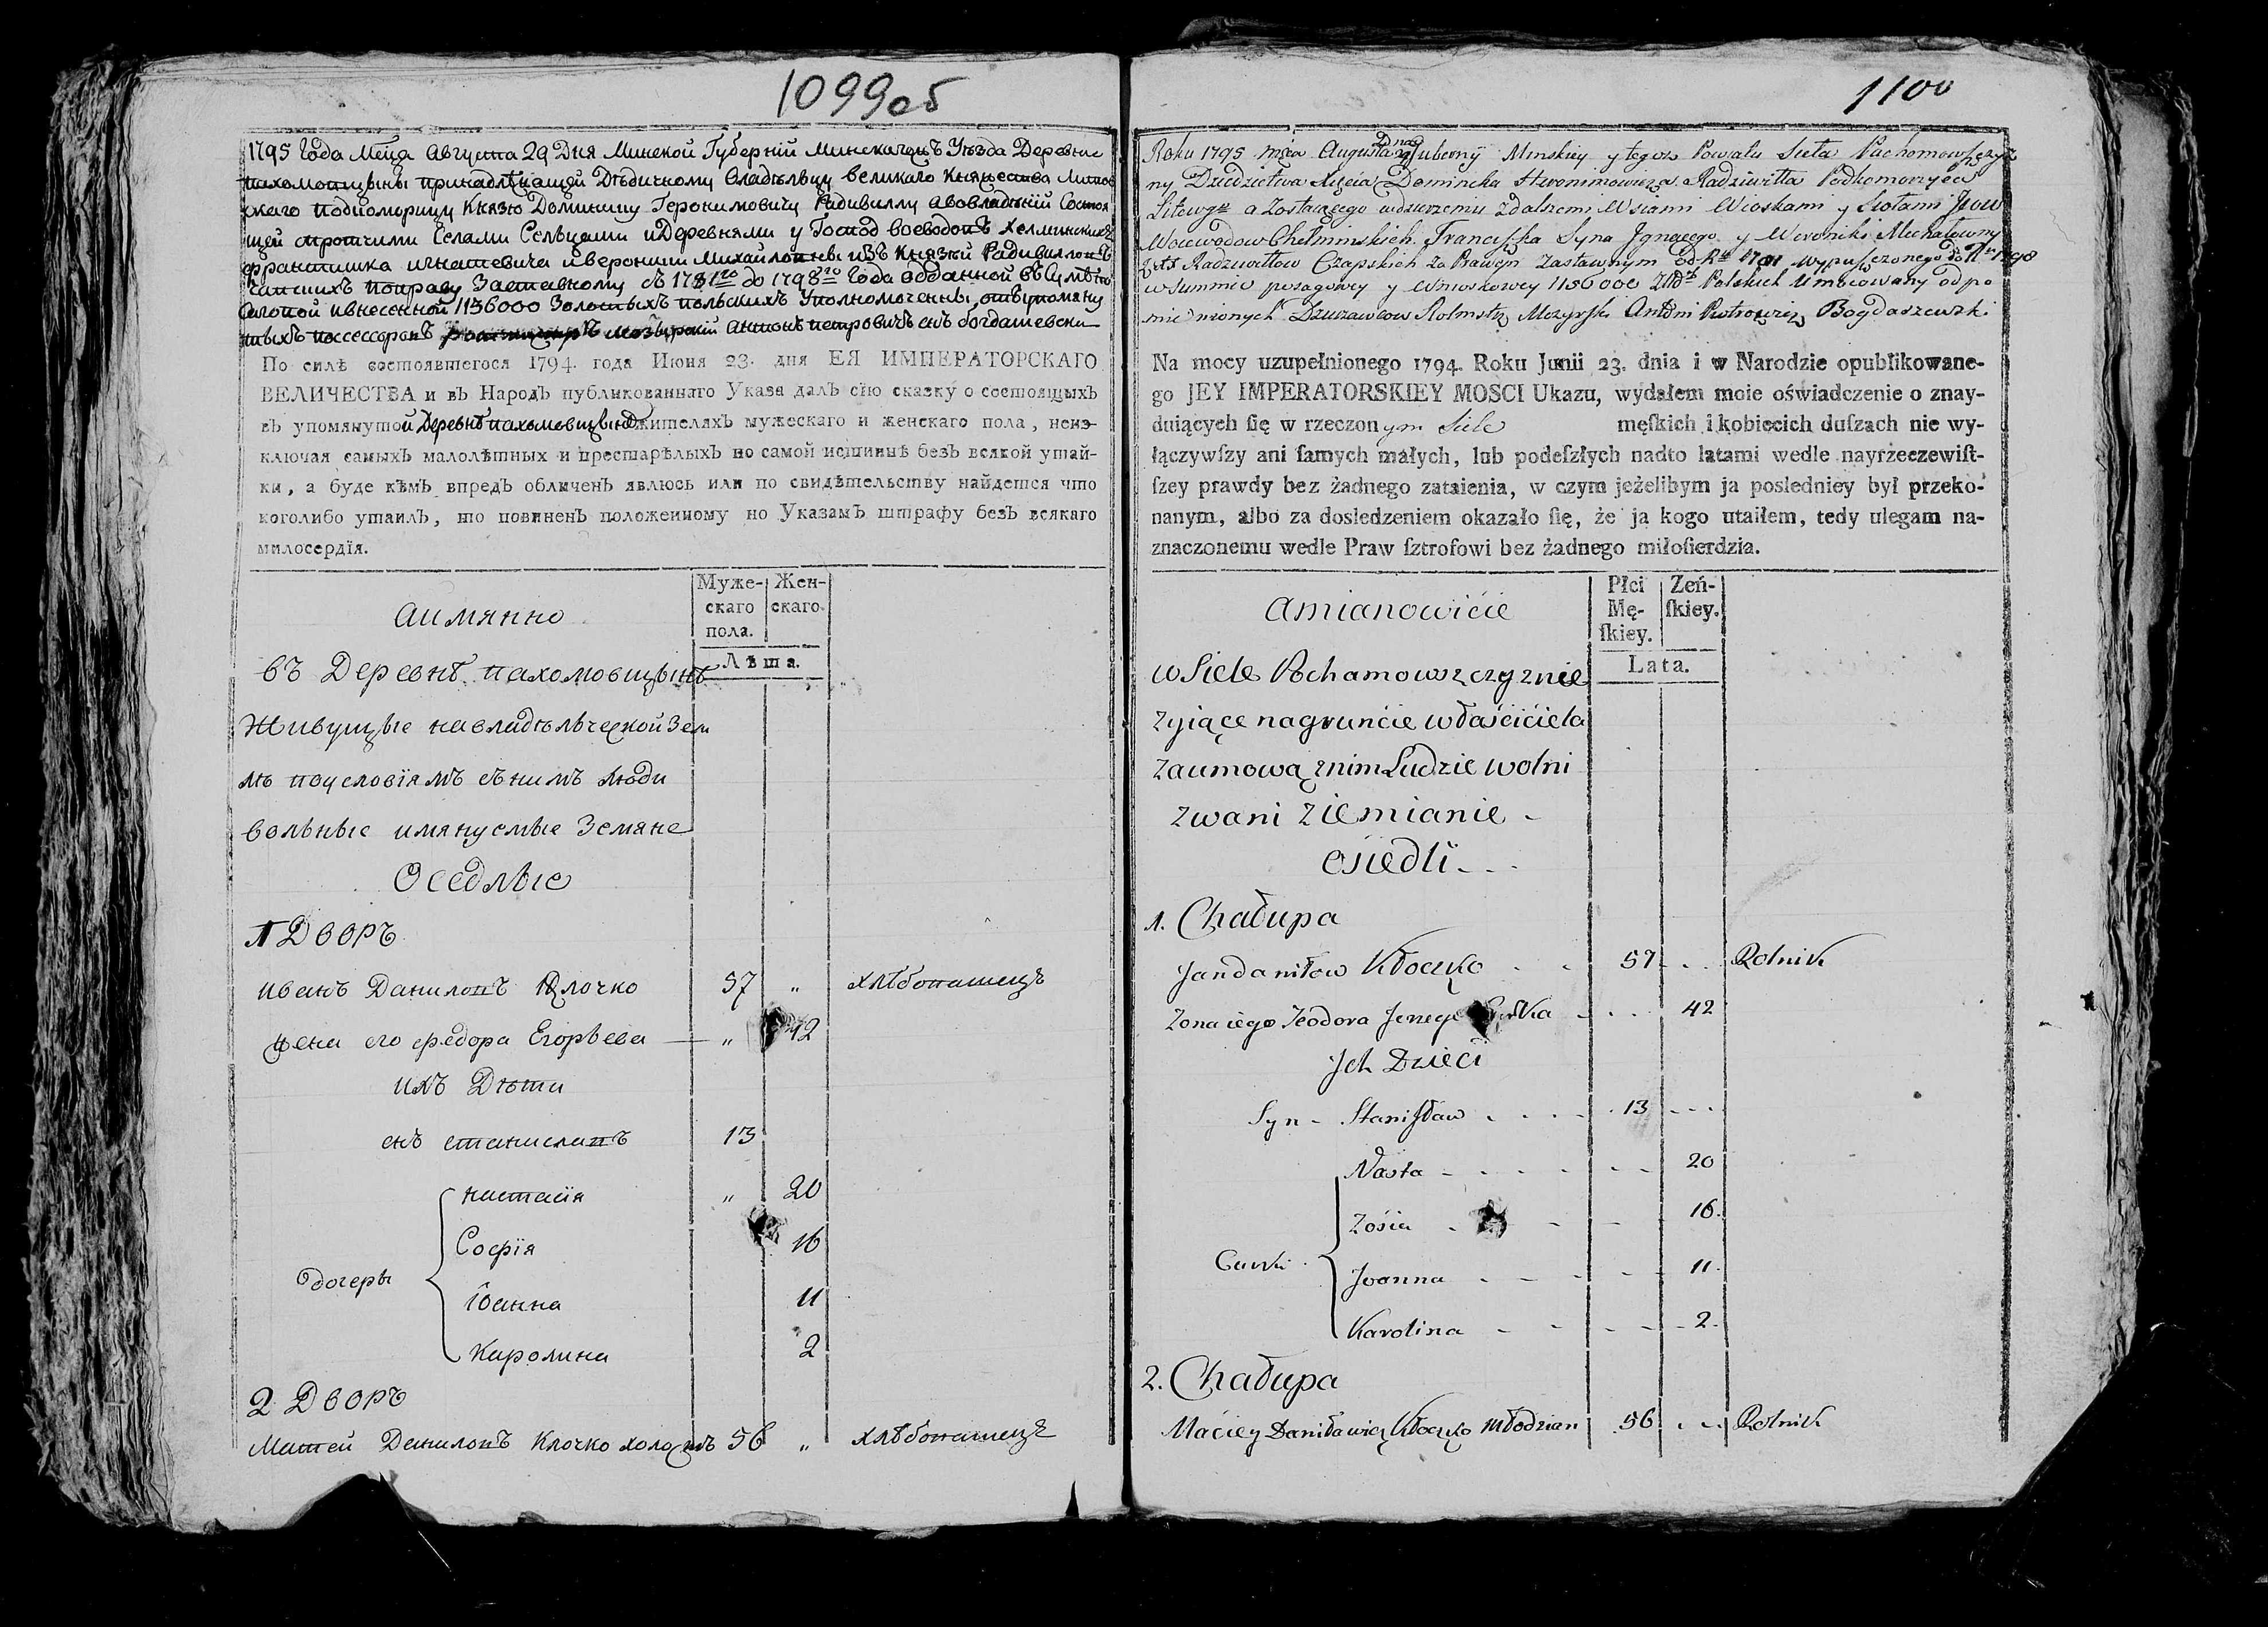 1099об
1795 Года Месца Августа 29 Дня Минской Губерніи Минскагожъ Уѣзда Деревни
пахомовщины принадлѣжащей Дѣдичному Владѣльцу великаго Княжества Литов
скаго подкоморицу Князю Доминику Геронимовичу Радивиллу а вовладѣніи Состоя
щей спротчими Селами Сельцами и Деревнями у Господ воеводовъ Хелминскихъ
франтишка игнатевича и вероники Михайловны изъ Князей Радивиловъ
Чапскихъ поправу Заставному съ 1791го до 1798го Года отданной въ Сумѣ по
саговой ивнесенной 1156000 Золотыхъ польскихъ Уполномоченны отъупомяну
тыхъ посессоровъ мозырскій антонъ петровичъ снъ богдашевски
По силѣ состоявшегося 1794. года Июня 23. дня ЕЯ ИМПЕРАТОРСКАГО
ВЕЛИЧЕСТВА и въ Народъ публикованнаго Указа далъ сїю сказку о состоящыхъ
въ упомянутой Деревнѣ пахомовщинѣ жителяхъ мужескаго и женскаго пола, неиз-
ключая самыхъ малолѣтных и престарѣлыхъ по самой истиннѣ безъ всякой утай-
ки, а буде кѣмъ впредъ обличенъ явлюсь или по свидѣтельству найдется что
коголибо утаилъ, то повиненъ положенному по Указамъ штрафу безъ всякаго
милосердїя.
Муже-
скаго
пола.
Жен-
скаго.
Лѣта.
аимянно
въ Деревнѣ пахомовщынѣ
Живущые навладѣльческой Зем
лѣ поусловїямъ снимъ люди
вольные имянуемые Земяне
Оседлые
1 Дворъ
иванъ Даниловъ Клочко 57 " хлѣбопашецъ
жена его федора Егорьева " 42
ихъ Дѣти
снъ станиславъ 13
настасїя " 20
Софїя 16
дочеры
їоанна 11
Каролина 2
2 Дворъ
Матей Даниловъ Клочко холостъ 56 " хлѣбопашецъ
1100
Roku 1795 mca Augusta 29 Dnia Gubernÿ Minskiey y tegoż Powiatu Sieła Pachomowszczyz
ny Dziedzictwa Xięcia Dominika Hieronimowicza Radziwiłła Podkomorzyca
Litewgo a Zostaiącego wdzierzeniu zdalszemi Wsiami Wioskami y Siołami JPow
Woiewodow Chełminskich Franciszka Syna Ignacego y Weroniki Michałowny
z Xt Radziwiłłow Czapskich za Prawem Zastawnym od Ru 1791 wypuszczonego do Ru 1798
w Summie posagowey y Wnioskowey 1156000 Złłch Polskich Umocowany odpo
mienionych Dzierzawcow Rotmstrz Mozyrski Antoni Piotrowicz Bogdaszewski
Na mocy uzupełnionego 1794. Roku Junii 23. dnia i w Narodzie opublikowane-
go JEY IMPERATORSKIEY MOSCI Ukazu, wydałem moie oświadczenie o znay-
duiących ſię w rzeczonym Siele męſkich i kobiecich duſzach nie wy-
łączywſzy ani ſamych małych, lub podeſzłych nadto latami wedle nayrzeczewiſt-
ſzey prawdy bez żadnego zataienia, w czym jeżelibym ja posledniey był przeko-
nanym, albo za dosledzeniem okazało ſię, że ja kogo utaiłem, tedy ulegam na-
znaczonemu wedle Praw ſztrofowi bez żadnego miłoſierdzia.
Płci
Mę-
ſkiey.
Zeń-
ſkiey.
Lata.
amianowićie
wSiele Pochamowszczyznie
zyiące nagrunćie właśćićiela
zaumową znim Ludzie wolni
zwani ziemianie
ośiedli
1. Chałupa
Jan daniłow Kłoczko 57 Rolnik
Zona iego Teodora 42
Jch Dzieci
Syn - Stanisław 13
Nasta 20
Zośia 16.
Curki
Joanna 11.
Karolina 2.
2. Chałupa
Maćiey Daniławicz Kłoczko Młodzian 56 Rolnik